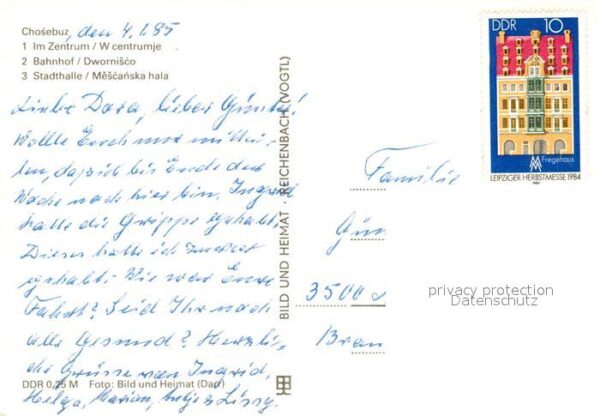 Chośebuz, den 4.1.85
1 Im Zentrum / W centrumje
2 Bahnhof / Dwornišćo
3 Stadthalle / Měšćańska hala
Liebe Dora, lieber Günter!
Wollte Euch nur mittei-
len, daß ich bis Ende der
Woche noch hier bin. Ingrid
hatte die Grippe gehabt.
Dieses hatte ich zuerst
gehabt. Wie war Eure
Fahrt? Seid Ihr noch
alle Gesund? Herzli-
che Grüsse von Ingrid,
Helga, Marian, Antje & Lissy.
DDR 0,25 M Foto: Bild und Heimat (Darr)
BILD UND HEIMAT REICHENBACH (VOGTL)
DDR 10
Fregehaus
LEIPZIGER HERBSTMESSE 1984
Familie
Gün
3500
Bran
privacy protection
Datenschutz